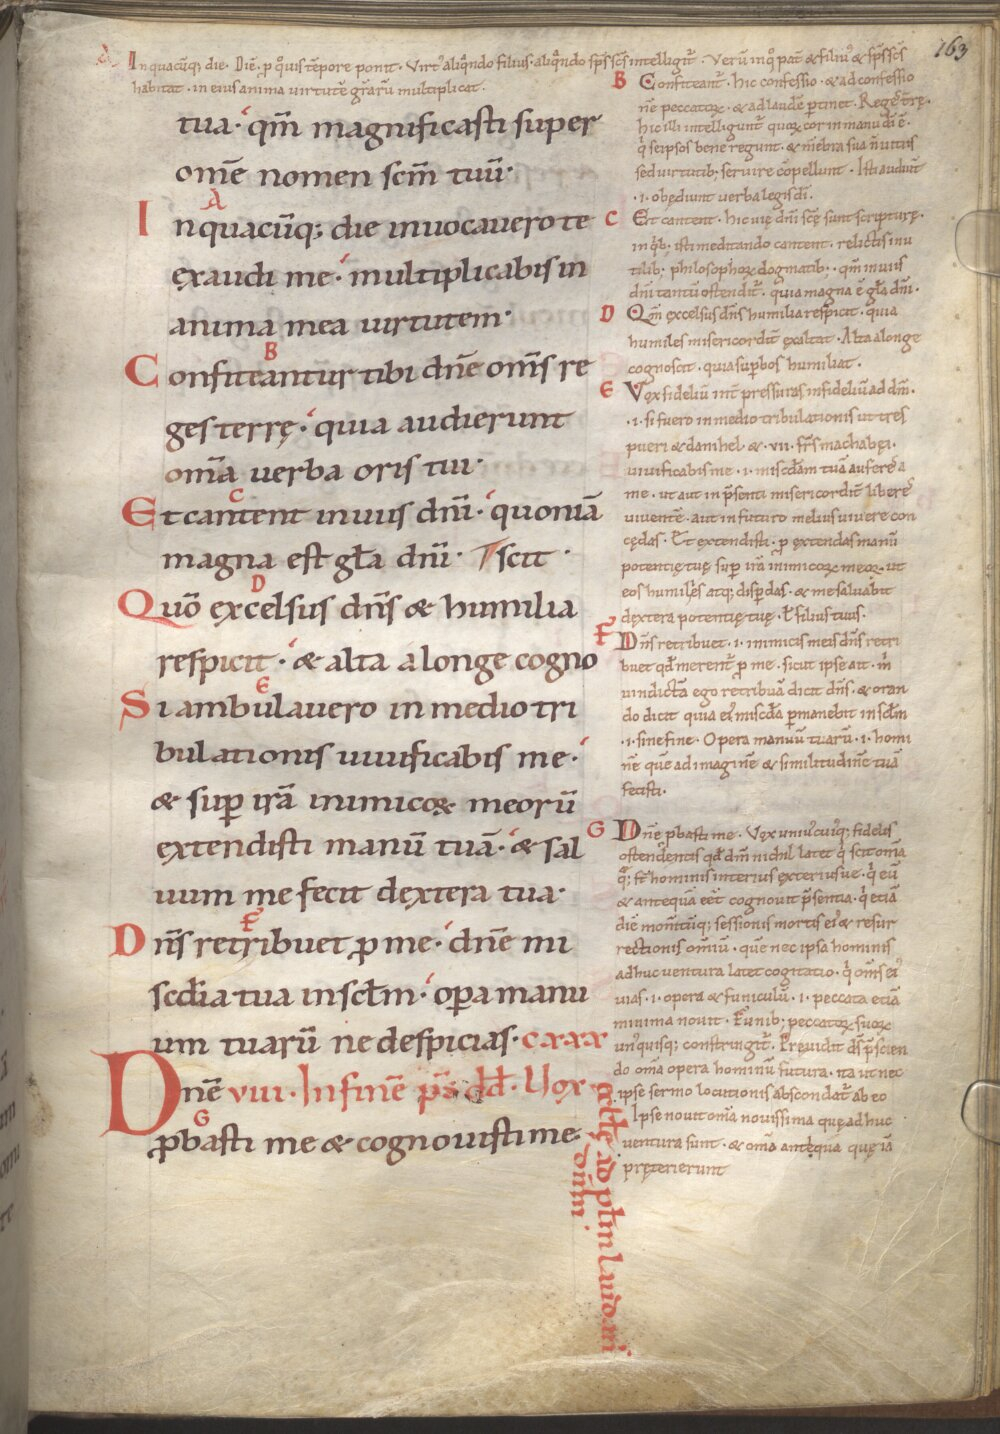 163
A Inquacūq; die. Diē. p q̊uis tēpore ponit. Virt᷒ aliq̄ndo filius. aliq̄ndo sp̄s sc̄s intelligit᷑. Verū inq̊ pat᷑ & fili᷒ & sp̄s sc̄s
habitat. in eius anima virtutē gr̄arū multiplicat.
tua. qm̄ magnificasti super
om̄e nomen scm̄ tuū.
A
Inquacūq; die inuocauero te
exaudi me. multiplicabis in
anima mea uirtutem.
B
Confiteantur tibi dn̄e om̄s re
ges terrę. quia audierunt
om̄a uerba oris tui.
C
Et cantent inuiis dn̄i. quoniā
magna est gl̄a dn̄i. scit.
D
Quō excelsus dn̄s & humilia
respicit. & alta a longe cogno
E
Si ambulauero in medio tri
bulationis uiuificabis me.
& sup irā inimicoꝝ meorū
extendisti manū tuā. & sal
uum me fecit dextera tua.
F
Dn̄s retribuet p me. dn̄e mi
scd̄ia tua in sclm̄. opa manu
um tuarū ne despicias. cxxx
Dn̄e viii. In finē ps̄. dd̄. Uox
G
pbasti me & cognouisti me
ad pl̄m laudan
dūm
B Confiteant᷑. hic confessio. & ad confessio
nē peccatoꝝ. & ad laudē ptinet. Reges t̄rę.
hic illi intelligunt᷑ quoꝝ cor in manu dī ē.
q̓ seipsos bene regunt. & mēbra sua n̄ uitiis
sed uirtutib; seruire cōpellunt. Isti audiunt
.i. obediunt uerba legis dī.
C Et cantent. hic uię dn̄i scę̄ sunt scripturę.
in q̓b; isti meditando cantent. relictis inu
tilib; philosophoꝝ dogmatib;. qm̄ in uiis
dn̄i tantū ostendit᷑. quia magna ē gl̄a dn̄i.
D Qm̄ excelsus dn̄s humilia respicit. quia
humiles misericordit᷑ exaltat. Alta a longe
cognoscit. quia supbos humiliat.
E Vox fideliū int᷑ pressuras infideliū ad dm̄.
.i. si fuero in medio tribulationis ut tres
pueri & danihel &. vii. fr̄s machabęi.
uiuificabis me. i. miscd̄am tuā aufere a
me. ut aut in p̄senti misericordit᷑ liberer
uiuentē. aut in futuro melius uiuere con
cędas. Et extendisti. p extendas manū
potentię tuę sup irā inimicoꝝ meoꝝ. ut
eos humilies atq; dispdas. & me saluabit
dextera potentię tuę. l̄ filius tuus.
F Dn̄s retribuet. i. inimicis meis dn̄s retri
buet qd̄ merent᷑ p me. sicut ipse ait. m̓
uindictā ego retribuā dicit dn̄s. & oran
do dicit quia ei᷒ miscd̄a pmanebit in sclm̄
.i. sine fine. Opera manuū tuarū. i. homi
nē quē ad imaginē & similitudinē tuā
fecisti.
G Dn̄e pbasti me. Vox uni᷒cui᷒q; fidelis
ostendentis qd̄ dm̄ nichil latet q̓ scit om̄a
q̄; s̄t hominis interius exteriusue. q̓ eū
& antequā eēt cognouit p̄sentia. q̓ etiā
diē mom̄tūq; sessionis mortis ei᷒ & resur
rectionis om̄iū. quē nec ipsa hominis
adhuc uentura latet cogitatio. q̓ om̄s ei᷒
uias. i. opera & funiculū. i. peccata etiā
minima nouit. Funib; peccatoꝝ suoꝝ
un᷒quisq; constringit᷑. Pręuidit ds̄ p̄scien
do om̄a opera hominū futura. ita ut nec
ipse sermo locutionis abscondat᷑ ab eo
Ipse nouit om̄a nouissima quę adhuc
uentura sunt. & om̄a antequā quę iā
pręterierunt